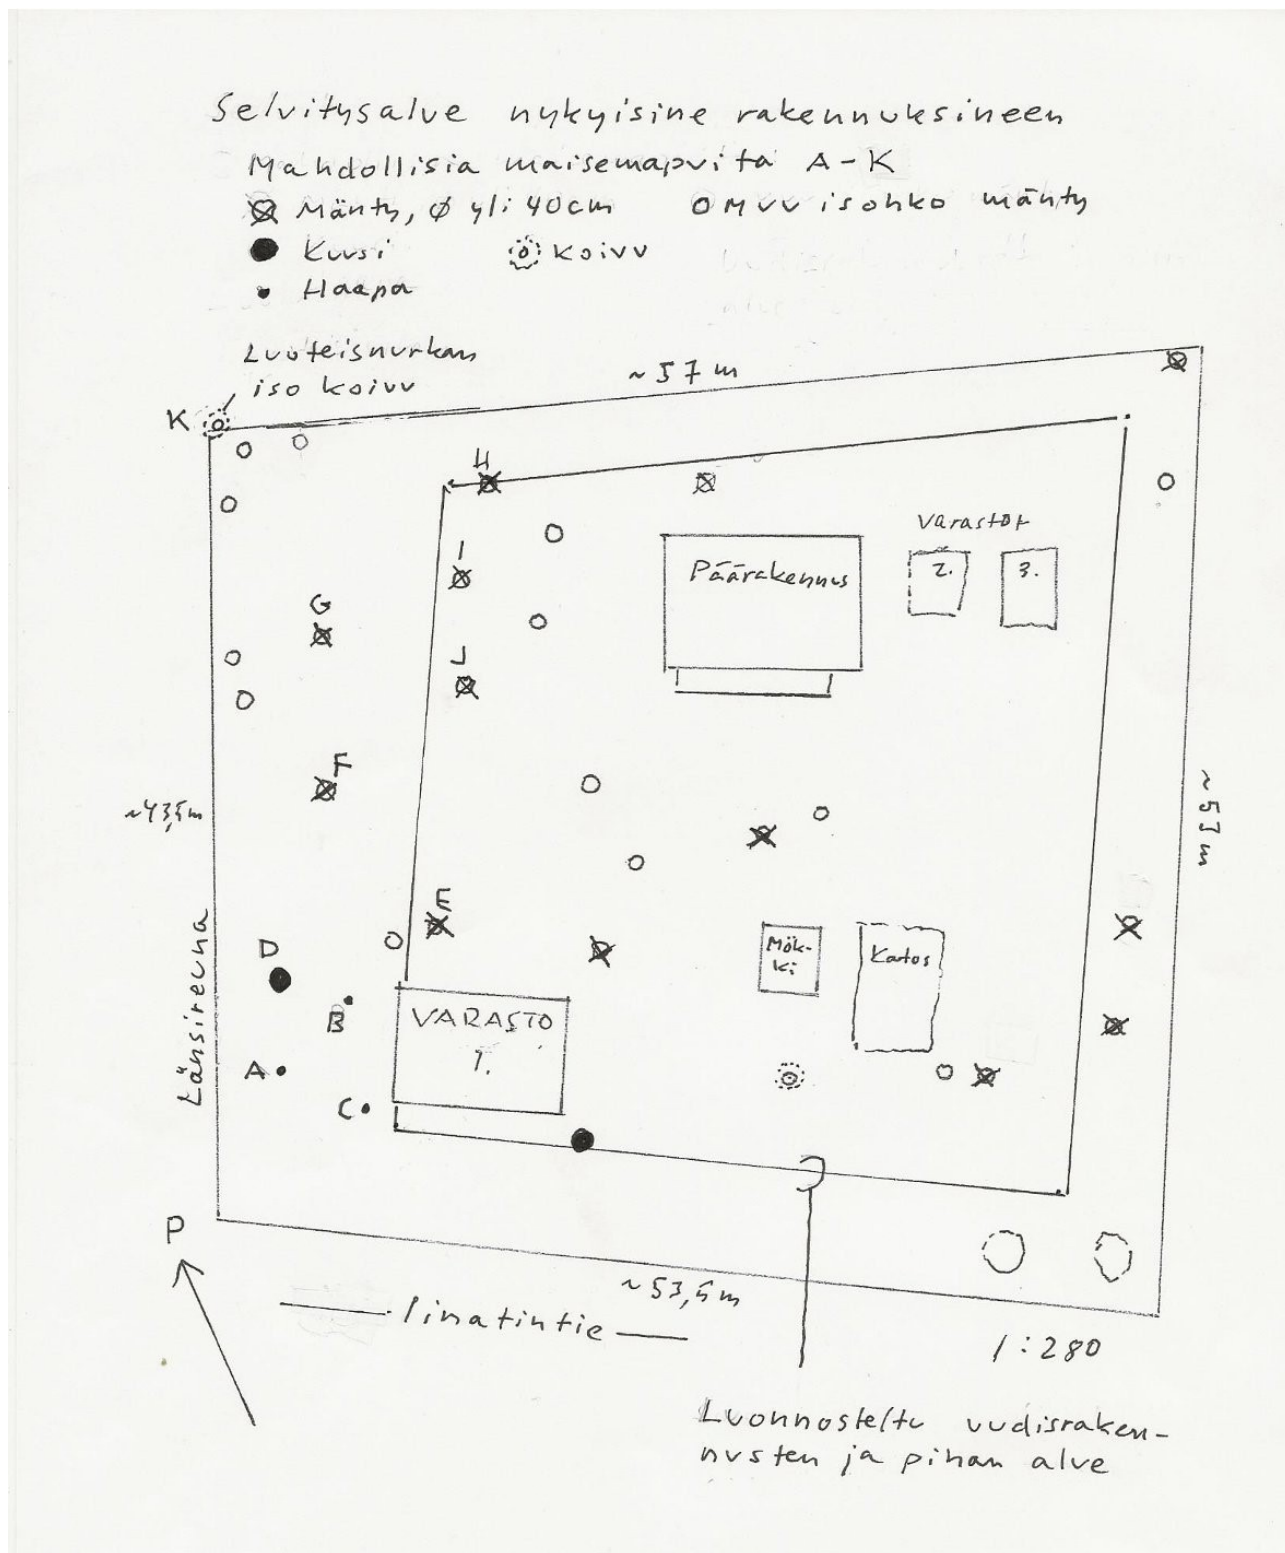 Selvitysalue nykyisine rakennuksineen
Mahdollisia maisemapuita A-K
Mänty, Ø yli 40cm   O Muu isohko mänty
Kuusi   Koivu
Haapa
Luoteisnurkan
iso koivu
~57 m
K
H
Varastot
I
Päärakennus
2.
3.
G
J
F
~43,5m
~53 m
E
Länsireuna
D
Mök-
ki
Katos
B
VARASTO
1.
A
C
P
~53,5m
Pinatintie
1:280
Luonnosteltu uudisraken-
nusten ja pihan alue